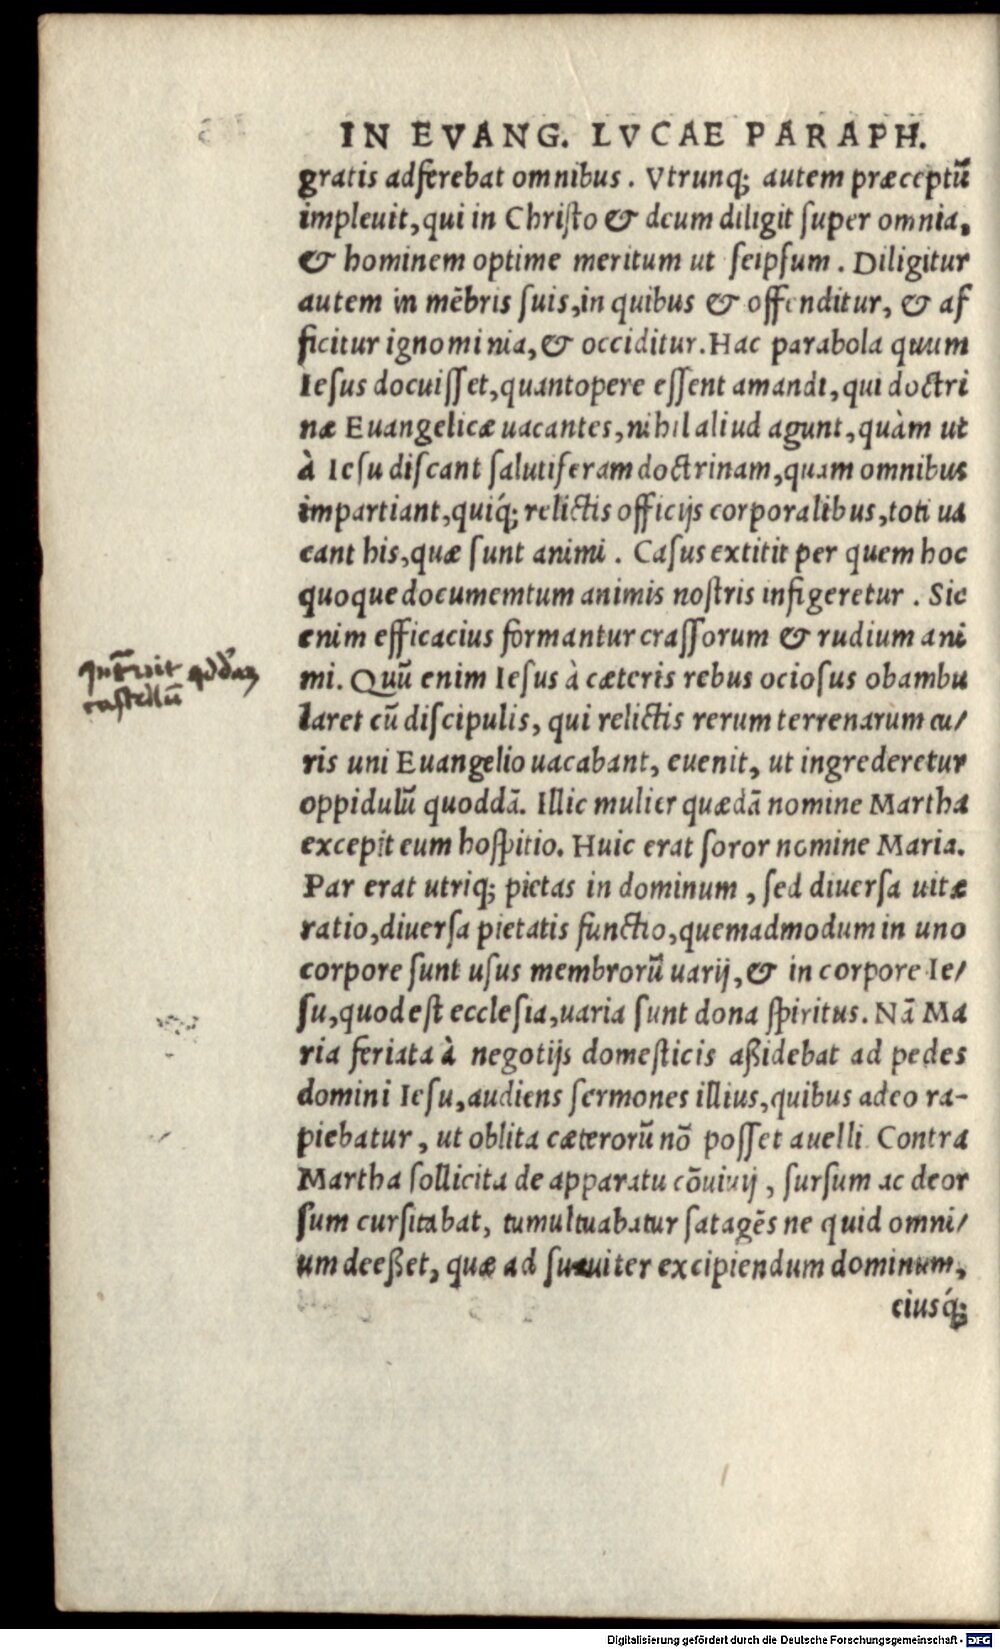 IN EVANG. LVCAE PARAPH.
gratis adferebat omnibus. Vtrunq; autem præceptũ
impleuit, qui in Christo & deum diligit super omnia,
& hominem optime meritum ut seipsum. Diligitur
autem in mẽbris suis, in quibus & offenditur, & af
ficitur ignominia, & occiditur. Hac parabola quum
Iesus docuisset, quantopere essent amandi, qui doctri
næ Euangelicæ uacantes, nihil aliud agunt, quàm ut
à Iesu discant salutiferam doctrinam, quam omnibus
impartiant, quiq́; relictis officijs corporalibus, toti ua
cant his, quæ sunt animi. Casus extitit per quem hoc
quoque documemtum animis nostris infigeretur. Sic
enim efficacius formantur crassorum & rudium ani
mi. Quũ enim Iesus à cæteris rebus ociosus obambu
Intrauit qddam
castellũ
laret cũ discipulis, qui relictis rerum terrenarum cu/
ris uni Euangelio uacabant, euenit, ut ingrederetur
oppidulũ quoddã. Illic mulier quædã nomine Martha
excepit eum hospitio. Huic erat soror nomine Maria.
Par erat utriq; pietas in dominum, sed diuersa uitæ
ratio, diuersa pietatis functio, quemadmodum in uno
corpore sunt usus membrorũ uarij, & in corpore Ie/
su, quod est ecclesia, uaria sunt dona spiritus. Nã Ma
ria feriata à negotijs domesticis aßidebat ad pedes
domini Iesu, audiens sermones illius, quibus adeo ra-
piebatur, ut oblita cæterorũ nõ posset auelli. Contra
Martha sollicita de apparatu cõuiuij, sursum ac deor
sum cursitabat, tumultuabatur satagẽs ne quid omni/
um deeßet, quæ ad suauiter excipiendum dominum,
eiusq́;
Digitalisierung gefördert durch die Deutsche Forschungsgemeinschaft - DFG